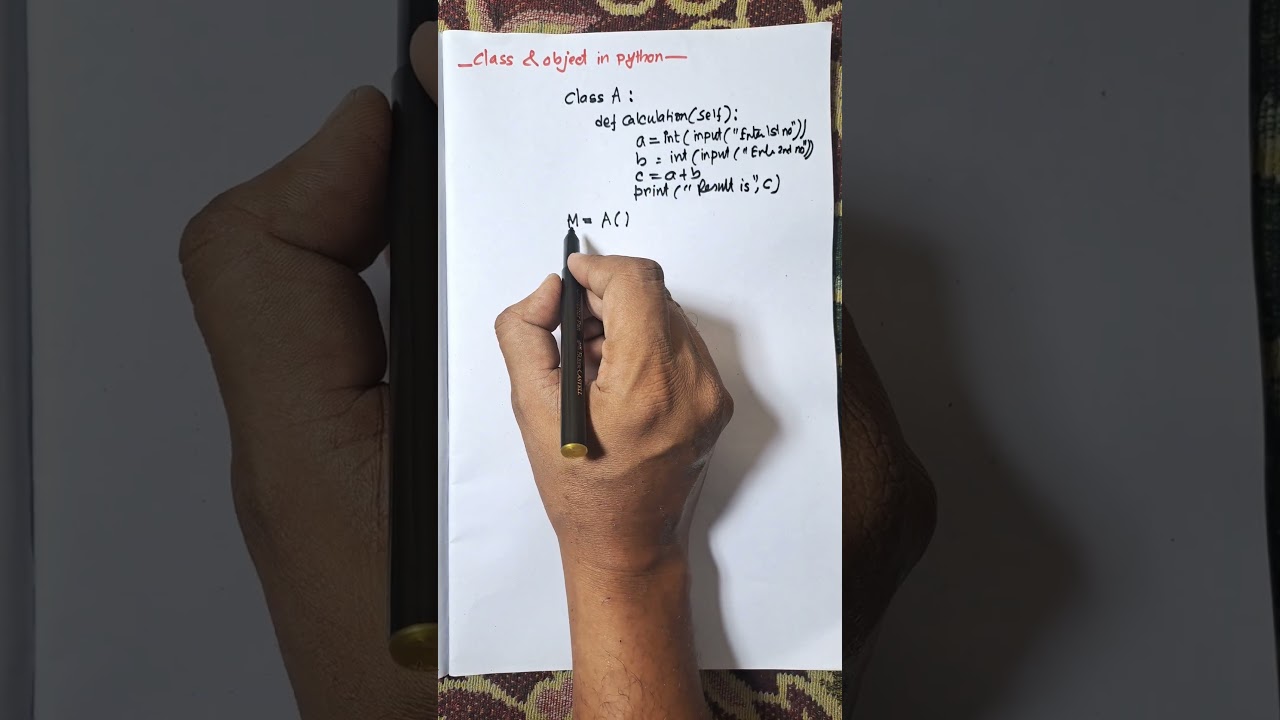 Class & object in python
Class A :
def Calculation(self):
a = int(input("Enter 1st no"))
b = int(input("Enter 2nd no"))
c = a+b
print("Result is", c)
M = A()
FABER-CASTELL